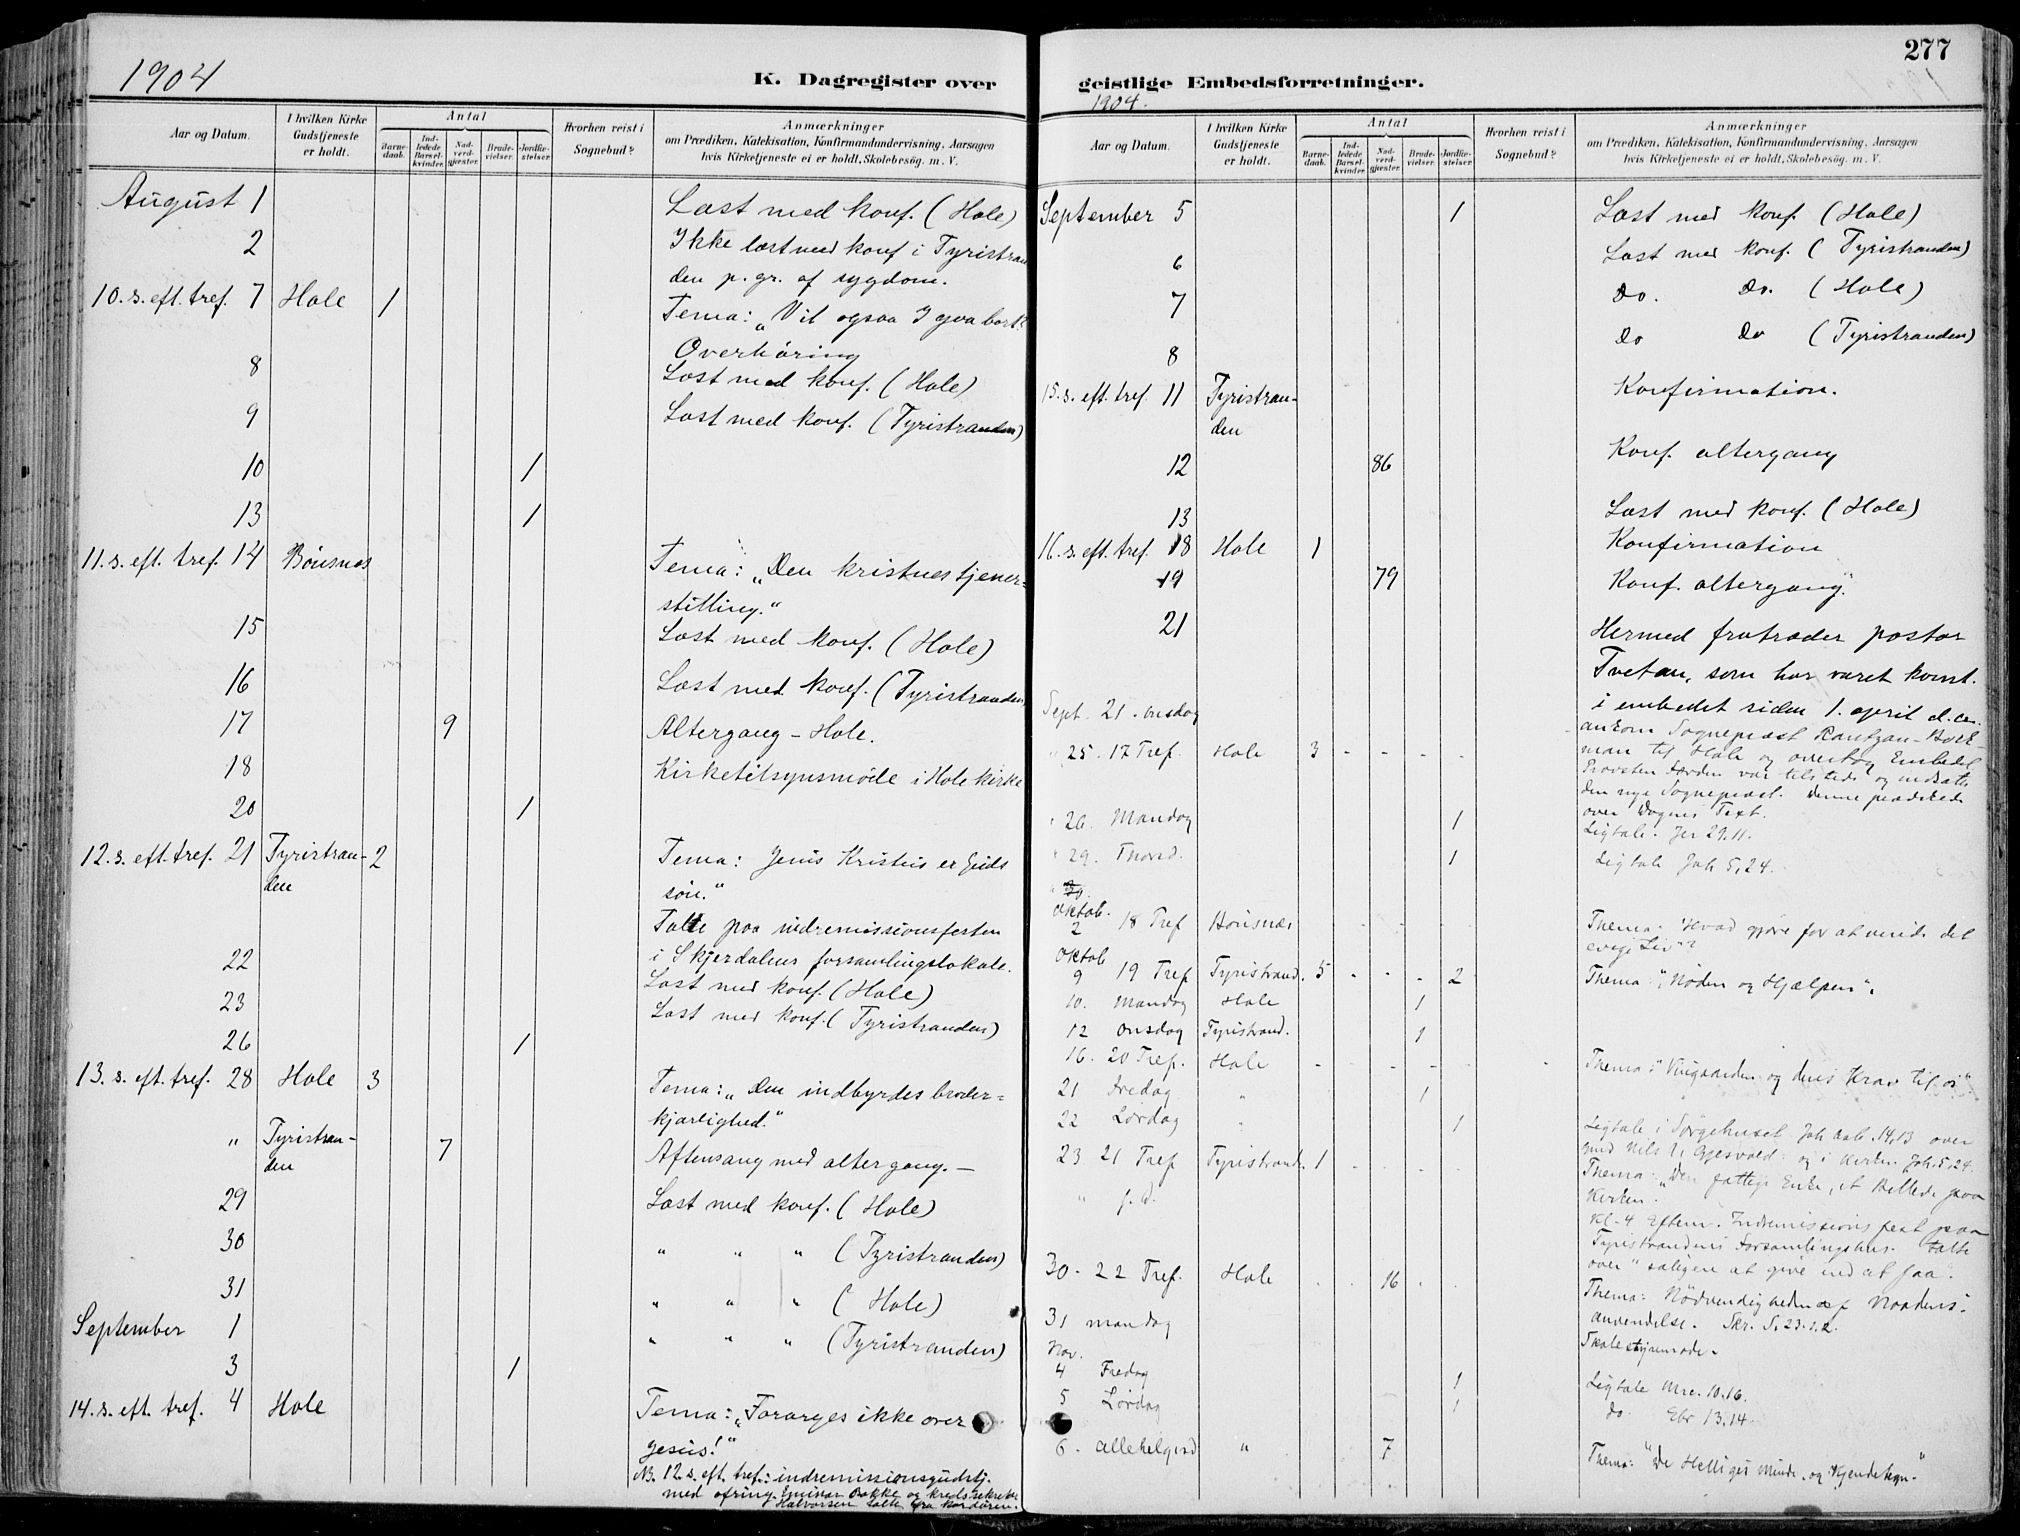 1904
K. Dagregister over
Aar og Datum.
I hvilken Kirke Gudstjeneste er holdt.
Antal
Barne-daab.
Ind-ledede Barsel-kvinder.
Nad-verd-gjester.
Brude-vielser.
Jordfæ-stelser.
Hvorhen reist i Sognebud?
Anmærkninger
om Prædiken, Katekisation, Konfirmandundervisning, Aarsagen
hvis Kirketjeneste ei er holdt, Skolebesøg. m. V.
August 1 Læst med konf. (Hole)
2 Ikke læst med konf i Tyristran
den p. gr. af sygdom.
10. s. eft. tref. 7 Hole 1 Tema: „Vil ogsaa I gaa bort?
Overhøring
8 Læst med konf. (Hole)
9 Læst med konf. (Tyristranden)
10 1
13 1
11. s. eft. tref. 14 Bönsnes Tema: „Den kristnes tjener=
stilling."
15 Læst med konf. (Hole)
16 Læst med konf. (Tyristranden
17 9 Altergang – Hole.
18 Kirketilsynsmöde i Hole kirke
20 1
12. s. eft. tref. 21 Tyristran- 2 Tema: Jesus Kristus er Guds
den sön."
Talte paa indremissionsfesten
22 i Skjerdalens forsamlingslokale.
Læst med konf. (Hole)
23 Læst med konf. (Tyristranden)
26 1
13. s. eft. tref. 28 Hole 3 Tema: „Den indbyrdes broder=
kjærlighed."
" Tyristran- 7 Aftensang med altergang. –
den
29 Læst med konf. (Hole)
30 " " " (Tyristranden)
31 " " " (Hole)
September 1 " " " (Tyristranden)
3 1
14. s. eft. tref. 4 Hole Tema: „Forarges ikke over
Jesus!"
NB. 12. s. eft. tref.: indremissionsgudstj.
med ofring. Emissær Bakke og kredssekretær
Halvorsen talte fra kordören.
277
geistlige Embedsforretninger.
1904.
Aar og Datum.
I hvilken Kirke Gudstjeneste er holdt.
Antal
Barne-daab.
Ind-ledede Barsel-kvinder.
Nad-verd-gjester.
Brude-vielser.
Jordfæ-stelser.
Hvorhen reist i Sognebud?
Anmærkninger
om Prædiken, Katekisation, Konfirmandundervisning, Aarsagen
hvis Kirketjeneste ei er holdt, Skolebesøg. m. V.
September 5 1 Læst med konf. (Hole)
6 Læst med konf. (Tyristranden)
7 Do. Do. (Hole)
8 Do Do (Tyristranden)
15. s. eft. tref. 11 Tyristran- Konfirmation.
den
12 86 Konf. altergang
13 Læst med konf. (Hole)
16. s. eft. tref. 18 Hole 1 Konfirmation
19 79 Konf. altergang.
21 Hermed fratræder pastor
Tvetan, som har været konst.
i embedet siden 1. april d. a.
Sept. 21. onsdag ankom Sognepræst Rantzau-Bock-
man til Hole og overtog Embedet
" 25. 17 Tref. Hole 3 - - - - Provsten Jorden var tilstede og indsatte
den nye Sognepræst. Denne prædikede
over Dagens Text.
" 26. Mandag 1 Ligtale. Jer 29.11.
" 29. Thorsd. 1 Ligtale Joh 5,24.
oktob.
2 18 Tref Bönsnæs Thema. "Hvad gjøre for at vinde det
evige Liv"?
oktob
9 19 Tref Tyristrand. 5 - - - 2 Thema: "Nøden og Hjælpen".
10. Mandag Hole 1
12 onsdag Tyristrand. 1
16. 20 Tref. Hole - - - - - Thema: "Vingaarden og dens Krav til os".
21 Fredag " 1
22 Lørdag " 1 Ligtale i Sørgehuset Joh Aab. 14,13 over
og i Kirken. Joh. 5,24.
23. 21 Tref Tyristrand. 1 - - - - Thema: „Den fattige Enke, et Billede paa
Kirken.
" s. d. Kl. 4 Eftm. Indremissions fest paa
Tyristrandens Forsamlingshus. talte
over "saligere at give end at faa".
30. 22 Tref. Hole . . 16 . . Thema: Nødvendigheden af Naadens
anvendelse.
31 mandag Skolestyremøde.
Nov.
4 Fredag 1 Ligtale Mrc. 10.16.
5 Lørdag 1 do. Ebr 13,14.
6. allehelgensd " 7 Thema: "De Helliges Minde og Kjendetegn."